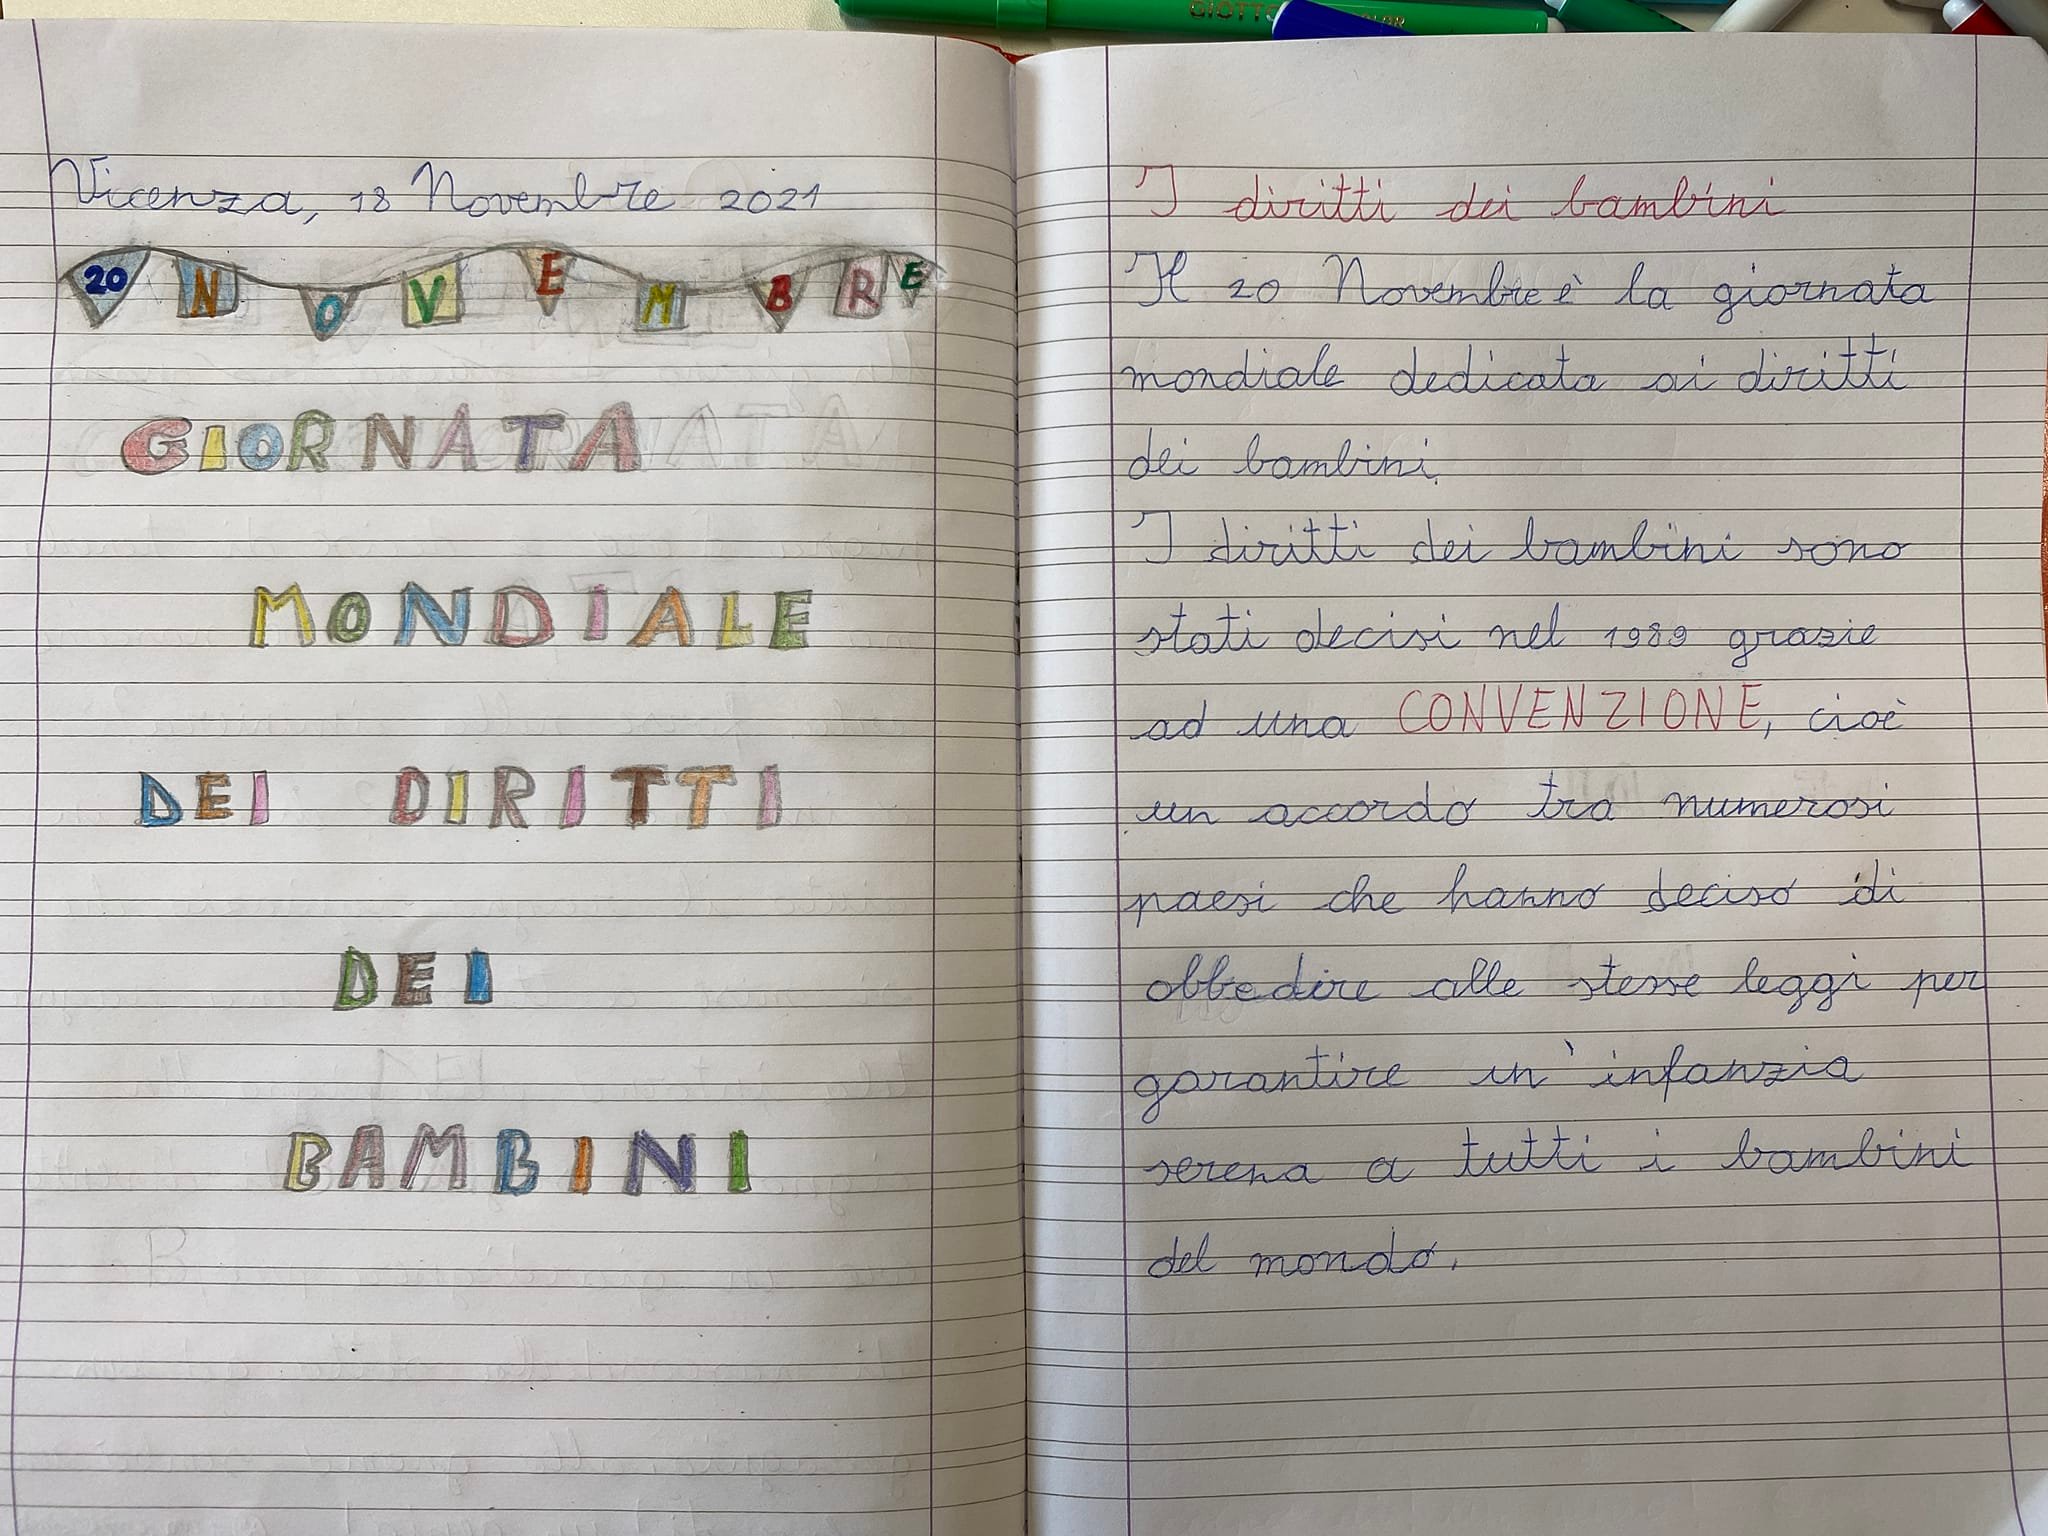 GIOTTO
Vicenza, 18 Novembre 2021
20 NOVEMBRE
GIORNATA
MONDIALE
DEI DIRITTI
DEI
BAMBINI
I diritti dei bambini
Il 20 Novembre è la giornata
mondiale dedicata ai diritti
dei bambini.
I diritti dei bambini sono
stati decisi nel 1989 grazie
ad una CONVENZIONE, cioè
un accordo tra numerosi
paesi che hanno deciso di
obbedire alle stesse leggi per
garantire un'infanzia
serena a tutti i bambini
del mondo.